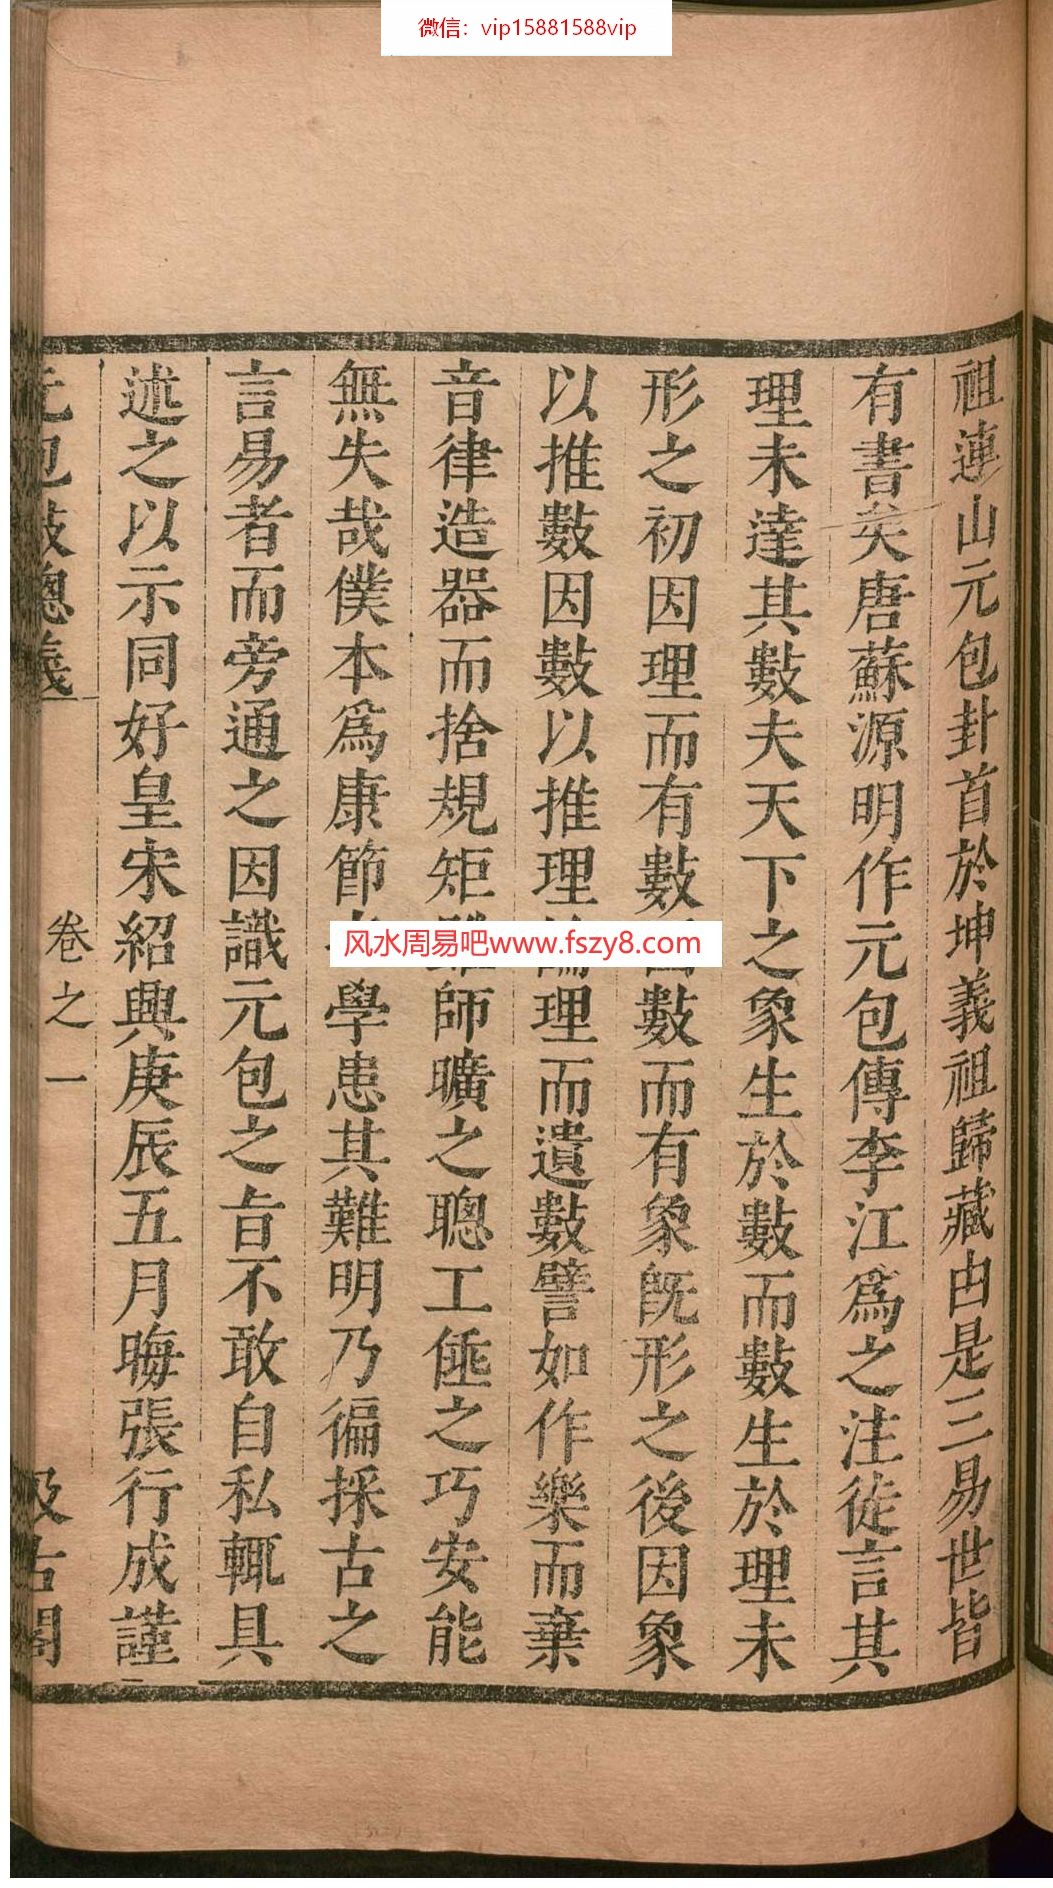 微信：vip15881588vip
祖連山元包卦首於坤義祖歸藏由是三易世皆
有書矣唐蘇源明作元包傳李江爲之注徒言其
理未達其數夫天下之象生於數而數生於理未
形之初因理而有數因數而有象旣形之後因象
以推數因數以推理論理而遺數譬如作樂而棄
音律造器而捨規矩雖師曠之聰工倕之巧安能
無失哉僕本爲康節學患其難明乃徧採古之
言易者而旁通之因識元包之旨不敢自私輒具
述之以示同好皇宋紹興庚辰五月晦張行成謹
元包數總義 卷之一 汲古閣
风水周易吧www.fszy8.com